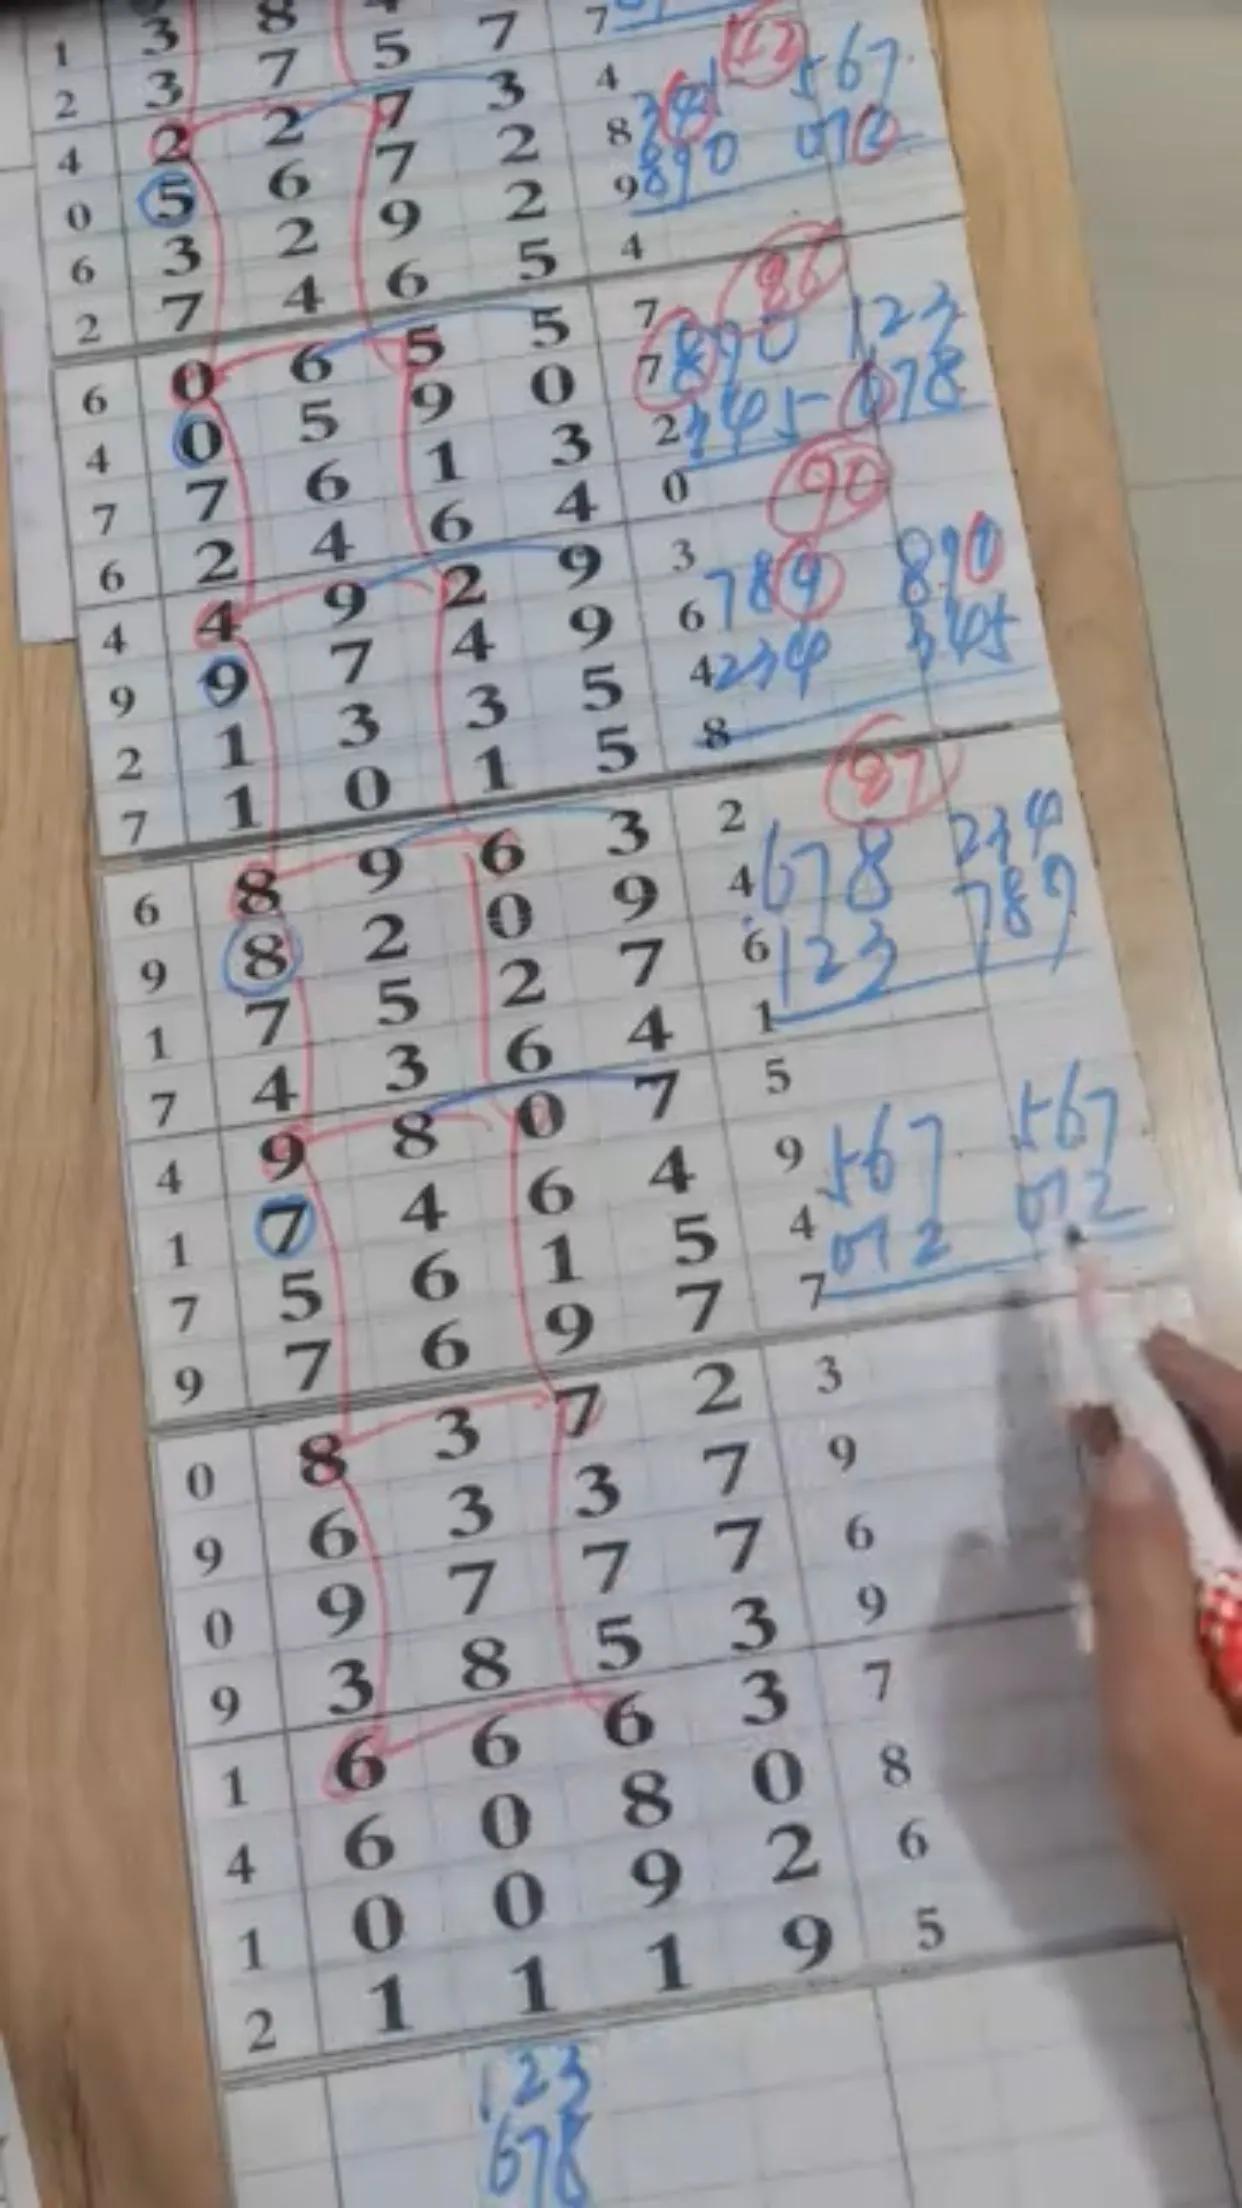 1 3 8
2 3 7 5 7 7
42
4 2 2 7 3 4 341 567
0 5 6 7 2 8 890 012
6 3 2 9 2 9
2 7 4 6 5 4
86
6 0 6 5 5 7 890 123
4 0 5 9 0 7 345 678
7 7 6 1 3 2
6 2 4 6 4 0
90
4 4 9 2 9 3 789 890
9 9 7 4 9 6 234 345
2 1 3 3 5 4
7 1 0 1 5 8
87
6 8 9 6 3 2 678 234
9 8 2 0 9 4 123 789
1 7 5 2 7 6
7 4 3 6 4 1
4 9 8 0 7 5 567 567
1 7 4 6 4 9 012 012
7 5 6 1 5 4
9 7 6 9 7 7
0 8 3 7 2 3
9 6 3 3 7 9
0 9 7 7 7 6
9 3 8 5 3 9
1 6 6 6 3 7
4 6 0 8 0 8
1 0 0 9 2 6
2 1 1 1 9 5
123
678